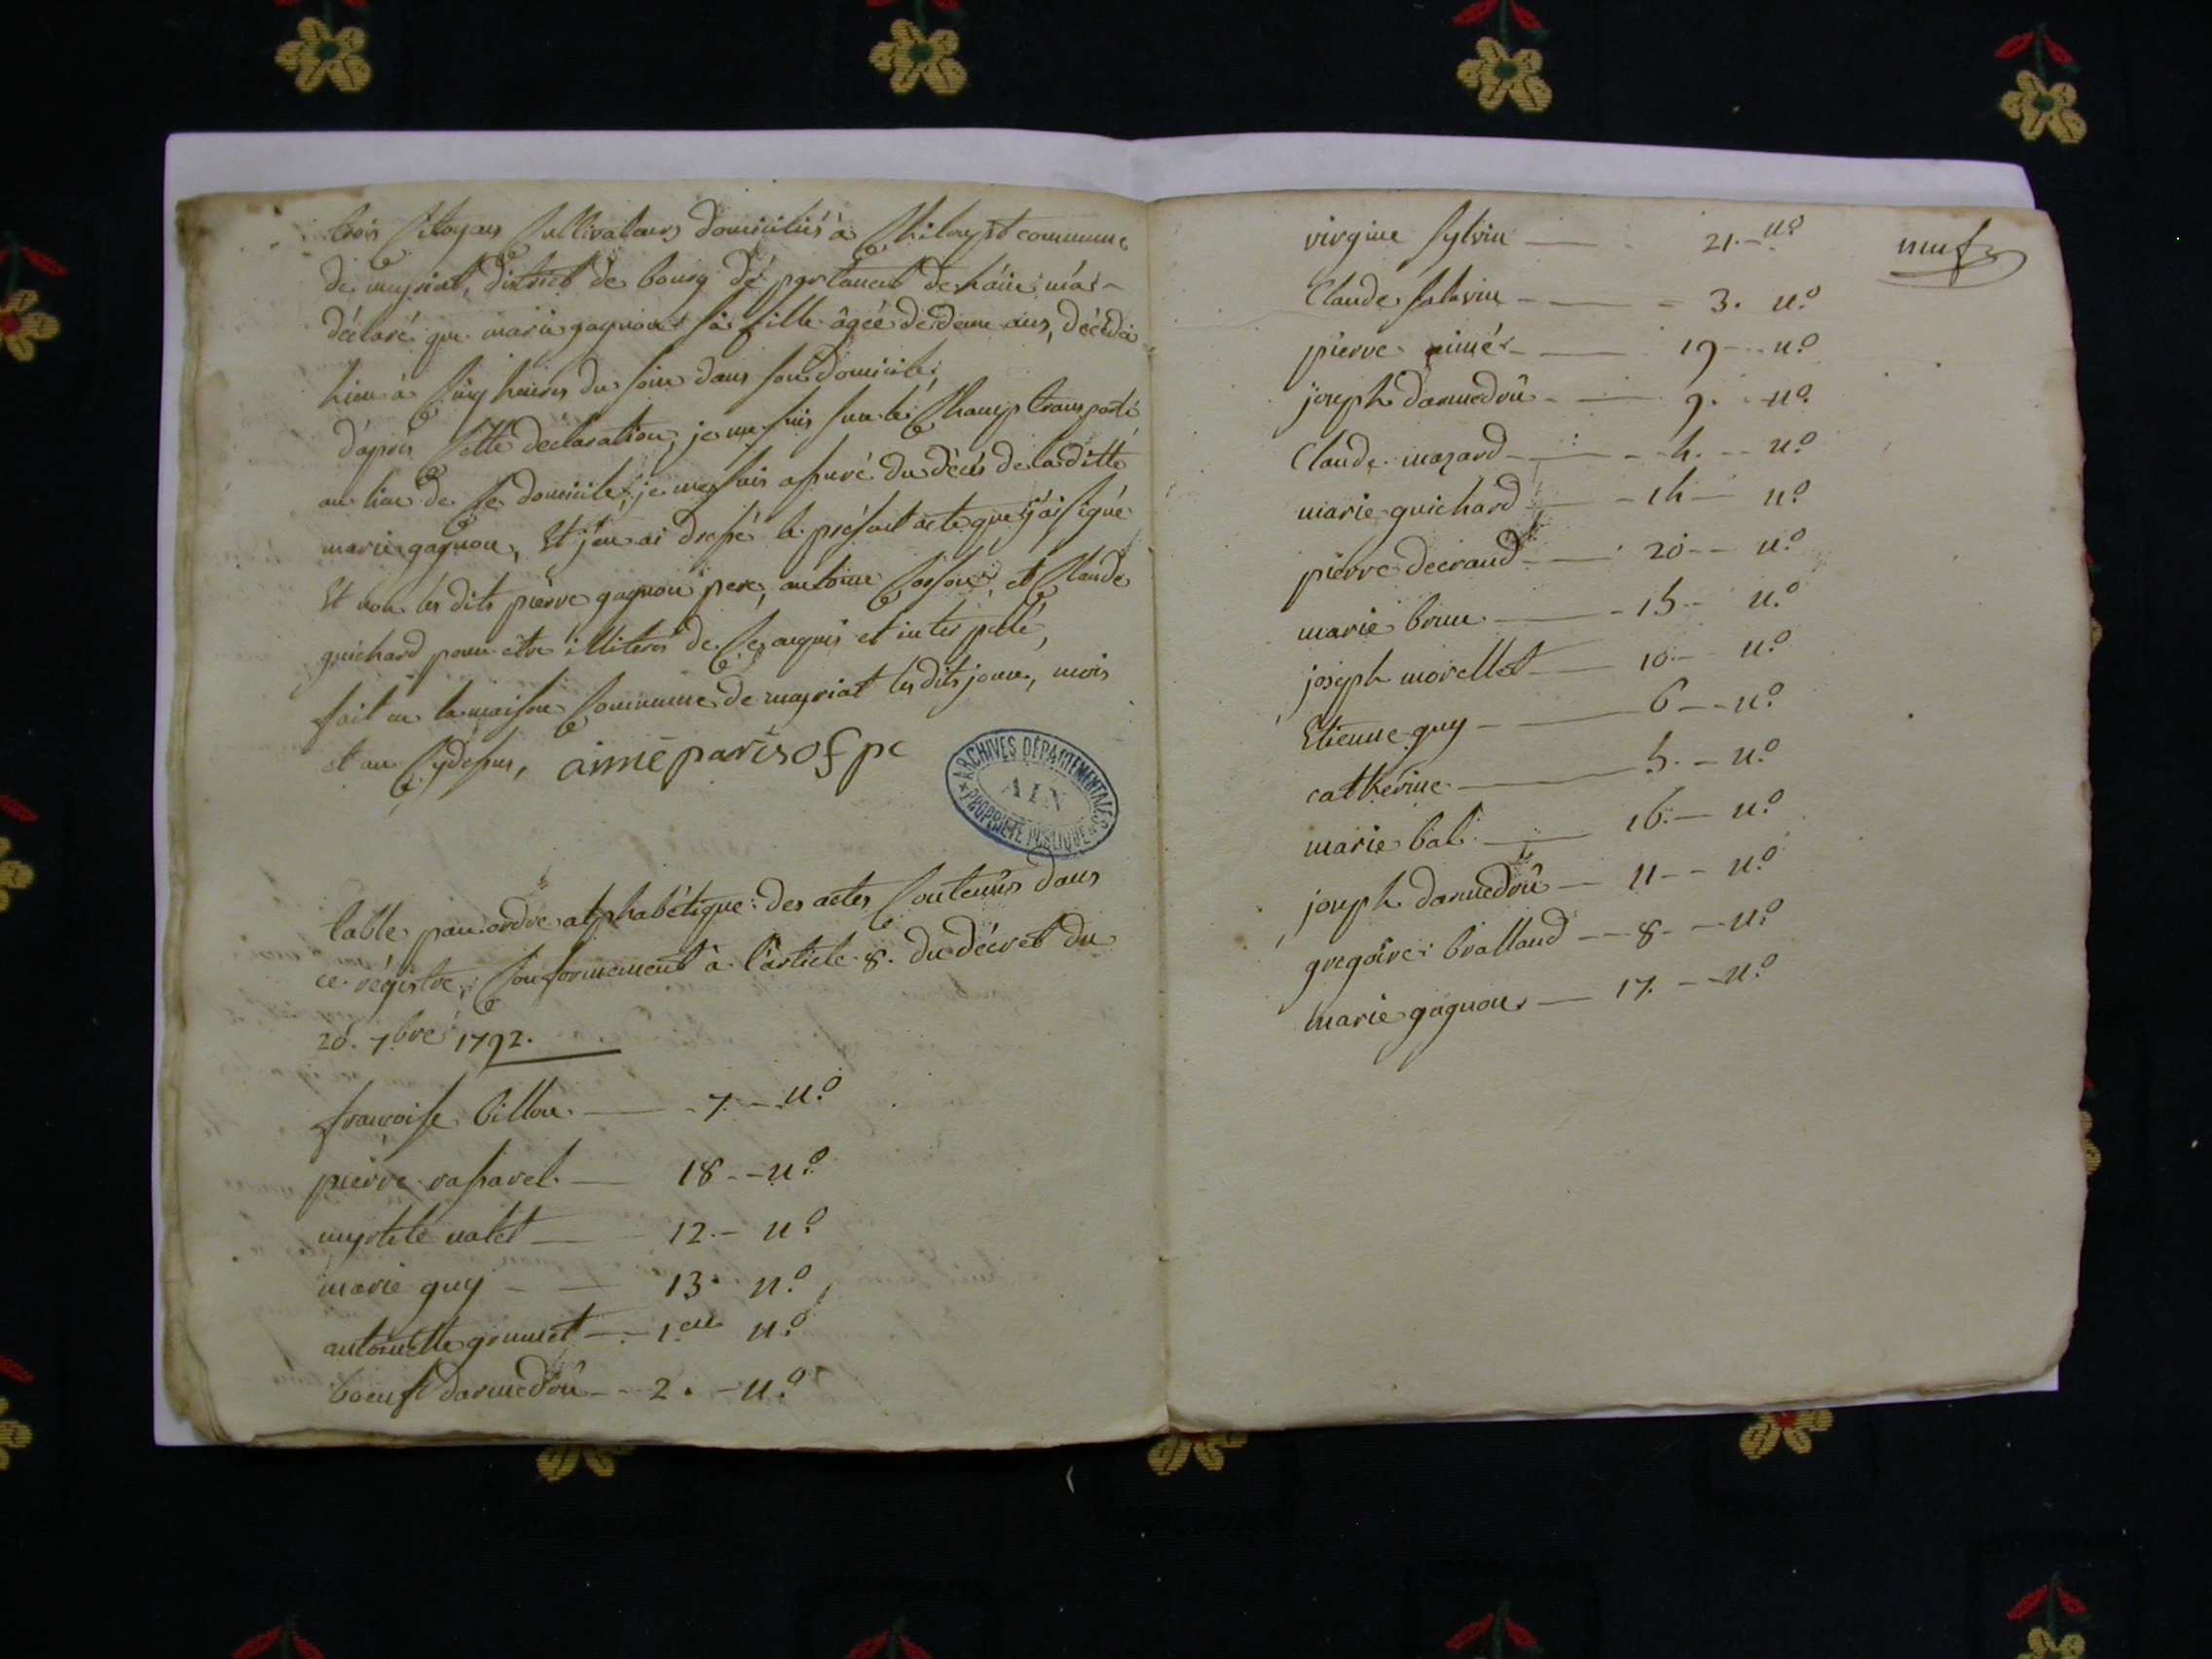 trois Citoyens Cultivateurs domiciliés à Chiloup st commune
de meyriat, district de bourg dé partement de háin, m'a-
déclaré que marie gagnon sa fille âgée de deux ans, décédée
hier à Cinq heures du soir dans son domicile,
d'après Cette déclaration, je me suis sur le Champ transporté
au lieu de Ce domicile, je me suis assuré du décés de la ditte
marie gagnon, Et j'en ai dressé le présent acte que j'ai signé
Et non les dits pierre gagnon pere, antoine et Claude
guichard pour être illiterés de Ce enquis et inter pellé,
fait en la maison Commune de meyriat les dits jour, mois
et an Cydessus, aime paris of pc
ARCHIVES DÉPARTEMENTALES
AIN
PROPRIÉTÉ PUBLIQUE
table par ordre alphabétique des actes Contenûs dans
ce régistre, Conformement à l'article 8. du décret du
20. 7.bre 1792.
francoise billon — 7 — n.o
pierre rassarel — 18 -- n.o
myrtile nalet — 12 - n.o
marie guy - — 13. n.o
antoinette gonnet — 1.er n.o
boeuf darmedrû - - 2. - n.o
virgine sylvin — 21. - n.o
Claude salavin - — - 3. n.o
pierre aimé - — 19 - - n.o
joseph darmedrû - — 9. n.o
Claude mazard - — - 4. - - n.o
marie guichard — - 14 — n.o
pierre decraud — 20 - - n.o
marie brun — - 15 - n.o
joseph morellet — 10. - n.o
Etienne guy - — 6 - - n.o
cathérine — 5. - n.o
marie bal — 16. — n.o
joseph darmedrû — 11 - - n.o
gregoire bralland - - 8 - - n.o
marie gagnon — 17. - - n.o
neuf